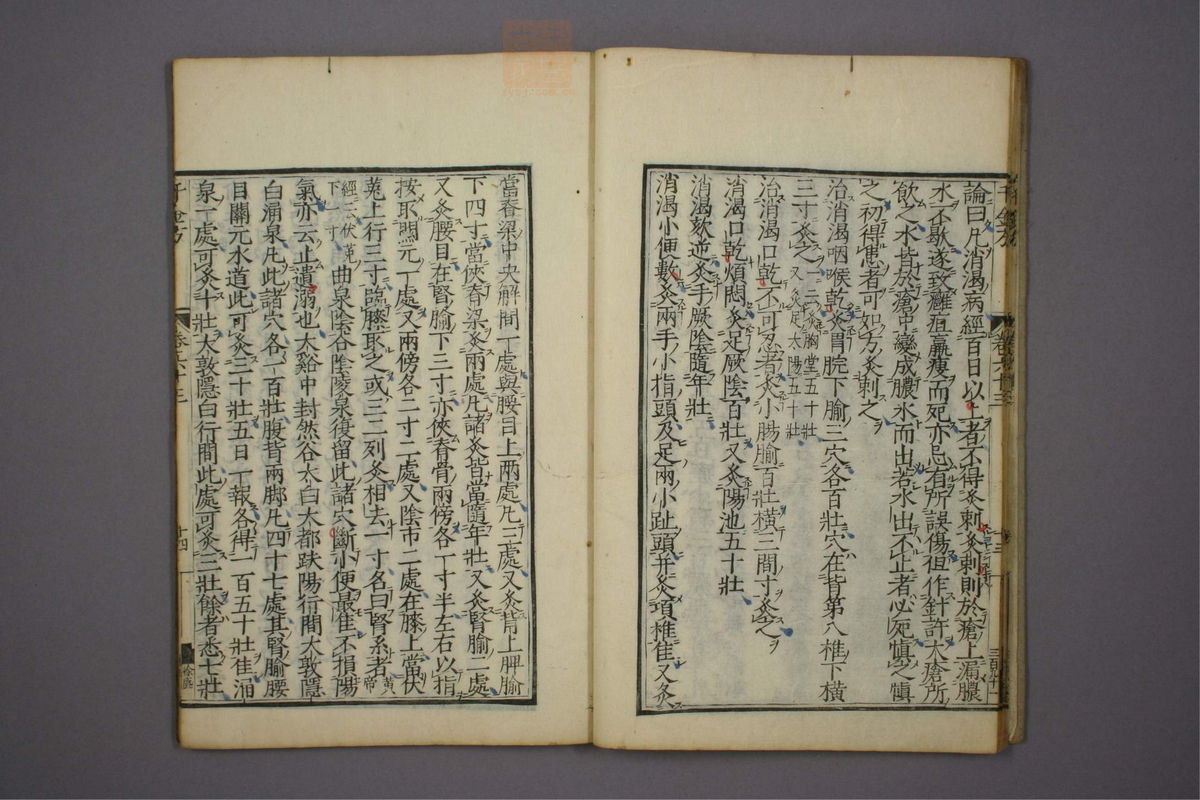 論曰凡消渴病經百日以上者不得灸刺灸刺則於瘡上漏膿
水不歇遂致癰疽羸瘦而死亦忌有所誤傷但作針許大瘡所
飲之水皆於瘡中變成膿水而出若水出不止者必死慎之慎
之初得患者可如方灸刺之
治消渴咽喉乾灸胃脘下腧三穴各百壯穴在背第八椎下橫
三寸灸之又灸胸堂五十壯又灸足太陽五十壯
治消渴口乾不可忍者灸小腸腧百壯橫三間寸灸之
消渴口乾煩悶灸足厥陰百壯又灸陽池五十壯
消渴欬逆灸手厥陰隨年壯
消渴小便數灸兩手小指頭及足兩小趾頭并灸項椎佳又灸
當脊梁中央解間一處與腰目上兩處凡三處又灸背上脾腧
下四寸當俠脊梁灸兩處凡諸灸皆當隨年壯又灸腎腧二處
又灸腰目在腎腧下三寸亦俠脊骨兩傍各一寸半左右以指
按取關元一處又兩傍各二寸二處又陰市二處在膝上當伏
菟上行三寸臨膝取之或三二列灸相去一寸名曰腎系者黃帝
經云伏菟下一寸曲泉陰谷陰陵泉復留此諸穴斷小便最佳不損陽
氣亦云止遺溺也太谿中封然谷太白大都趺陽行間大敦隱
白涌泉凡此諸穴各一百壯腹背兩腳凡四十七處其腎腧腰
目關元水道此可灸三十壯五日一報各得一百五十壯佳涌
泉一處可灸十壯大敦隱白行間此處可灸三壯餘者悉七壯
千金方
卷六十三
廿四